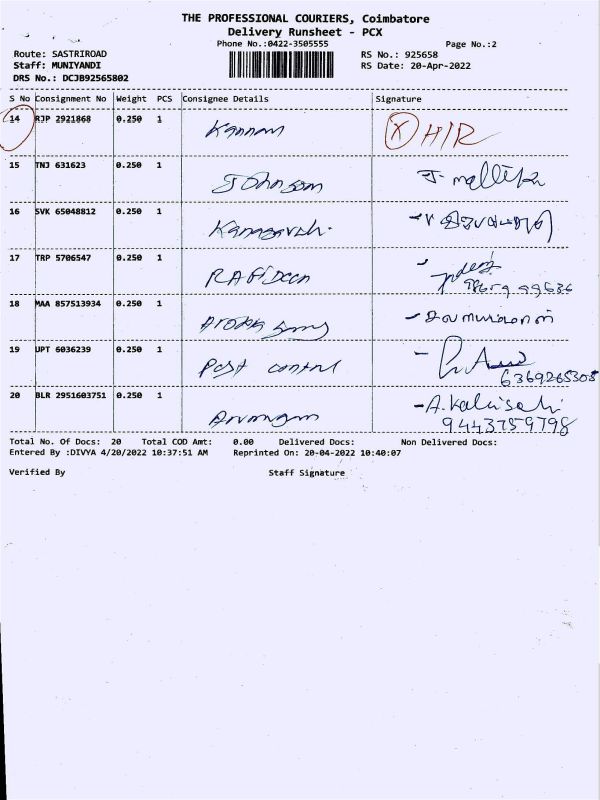 THE PROFESSIONAL COURIERS, Coimbatore
Delivery Runsheet - PCX
Phone No.:0422-3505555
Page No.:2
Route: SASTRIROAD
RS No.: 925658
Staff: MUNIYANDI
RS Date: 20-Apr-2022
DRS No.: DCJB92565802
S No Consignment No Weight PCS Consignee Details Signature
14 RJP 2921868 0.250 1 Kannan X H/R
15 TNJ 631623 0.250 1 Johnson mallika
16 SVK 65048812 0.250 1
17 TRP 5706547 0.250 1 RAfiDeen
18 MAA 857513934 0.250 1
19 UPT 6036239 0.250 1 Pest control
6369265305
20 BLR 2951603751 0.250 1 A.Kalaiselvi
9443759798
Total No. Of Docs: 20 Total COD Amt: 0.00 Delivered Docs: Non Delivered Docs:
Entered By :DIVYA 4/20/2022 10:37:51 AM Reprinted On: 20-04-2022 10:40:07
Verified By Staff Signature